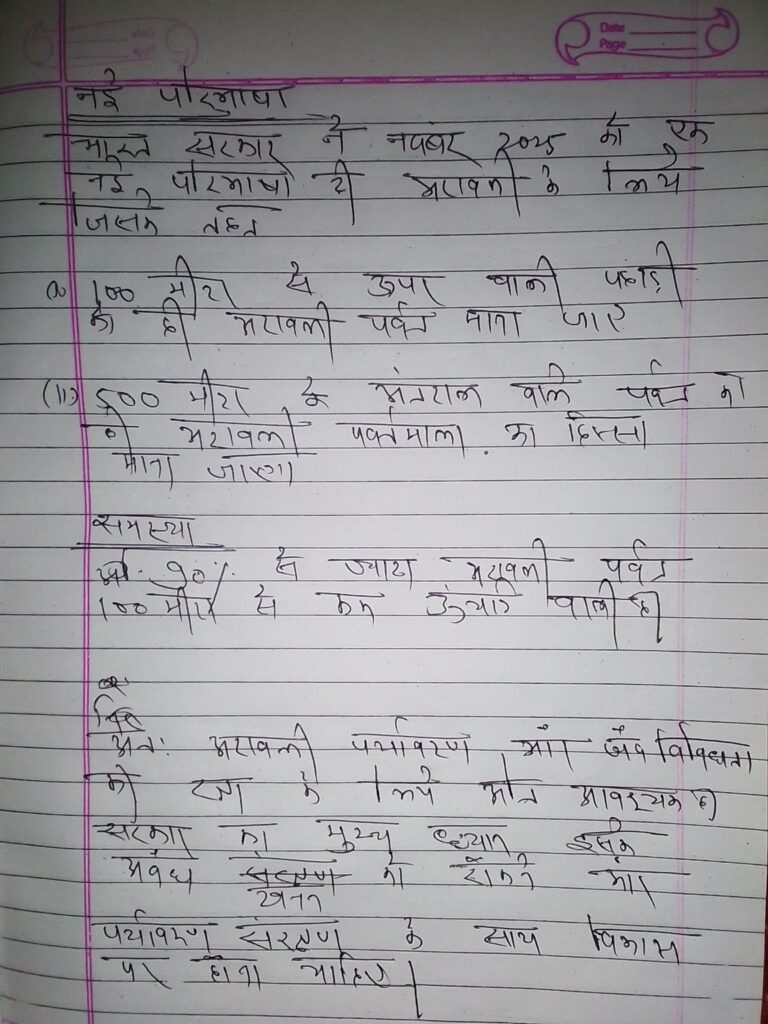 Date
Page
नई परिभाषा
भारत सरकार ने नवंबर 2025 को एक
नई परिभाषा दी अरावली के लिये
जिसके तहत
(i) 100 मीटर से ऊपर वाली पहाड़ी
को ही अरावली पर्वत माना जाए
(ii) 500 मीटर के अंतराल वाले पर्वत को
ही अरावली पर्वतमाला का हिस्सा
माना जाएगा
समस्या
90% से ज्यादा अरावली पर्वत
100 मीटर से कम ऊंचाई वाली है।
अतः अरावली पर्यावरण और जैव विविधता
की रक्षा के लिये अति आवश्यक है।
सरकार का मुख्य ध्यान इसके
अवैध खनन को रोकने और
पर्यावरण संरक्षण के साथ विकास
पर होना चाहिए।